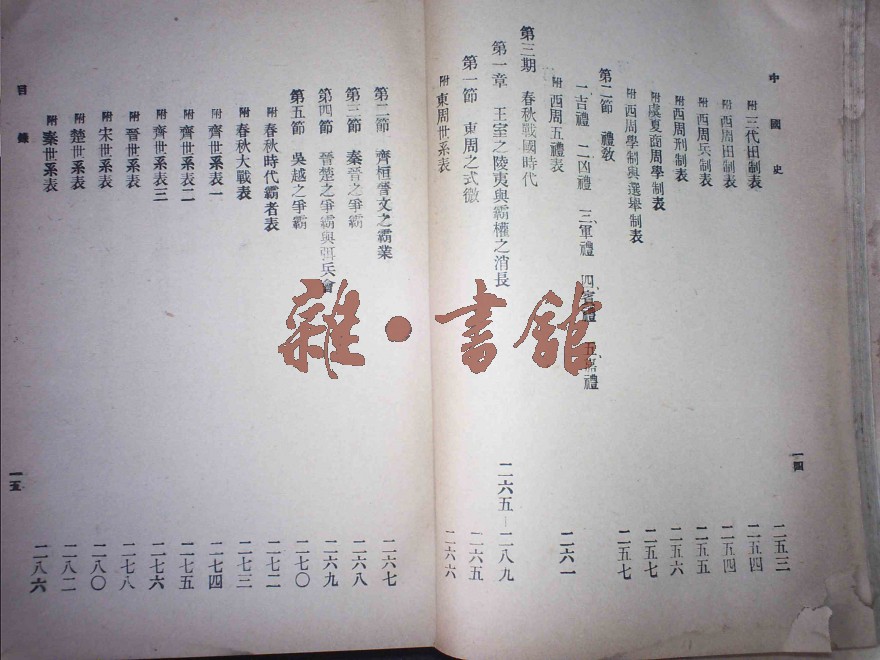 中國史
一四
附 三代田制表 二五三
附 西周田制表 二五四
附 西周兵制表 二五四
附 西周刑制表 二五五
附 虞夏商周學制表 二五六
附 西周學制與選舉制表 二五七
第二節 禮教 二五七
一、吉禮 二、凶禮 三、軍禮 四、賓禮 五、嘉禮
附 西周五禮表 二六一
第三期 春秋戰國時代
第一章 王室之陵夷與霸權之消長 二六五—二八九
第一節 東周之式微 二六五
附 東周世系表 二六六
第二節 齊桓晉文之霸業 二六七
第三節 秦晉之爭霸 二六八
第四節 晉楚之爭霸與弭兵會 二六九
第五節 吳越之爭霸 二七〇
附 春秋時代霸者表 二七二
附 春秋大戰表 二七三
附 齊世系表一 二七四
附 齊世系表二 二七五
附 齊世系表三 二七六
附 晉世系表 二七八
附 宋世系表 二八〇
附 楚世系表 二八二
附 秦世系表 二八六
目錄
一五
雜·書館